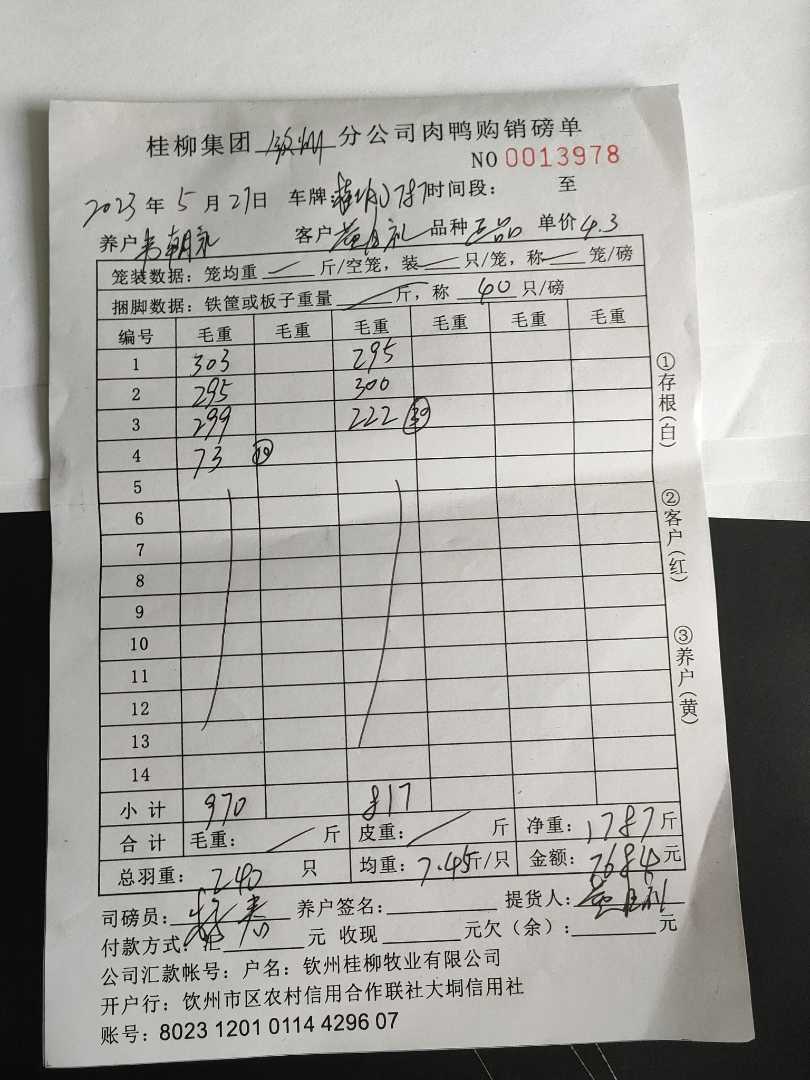 桂柳集团 钦州 分公司肉鸭购销磅单
NO 0013978
2023 年 5 月 27 日 车牌: 时间段: 至
养户 韦朝礼 客户 礼 品种 正品 单价 4.3
笼装数据: 笼均重 斤/空笼, 装 只/笼, 称 笼/磅
捆脚数据: 铁筐或板子重量 斤, 称 40 只/磅
编号 毛重 毛重 毛重 毛重 毛重 毛重
1 303 295
2 295 300
3 299 222 30
4 73 10
5
6
7
8
9
10
11
12
13
14
小计 970 817
合计 毛重: 斤 皮重: 斤 净重: 1787 斤
总羽重: 240 只 均重: 7.45 斤/只 金额: 7684 元
司磅员: 养户签名: 提货人:
付款方式: 元 收现 元欠(余): 元
公司汇款帐号: 户名: 钦州桂柳牧业有限公司
开户行: 钦州市区农村信用合作联社大垌信用社
账号: 8023 1201 0114 4296 07
①存根(白)
②客户(红)
③养户(黄)